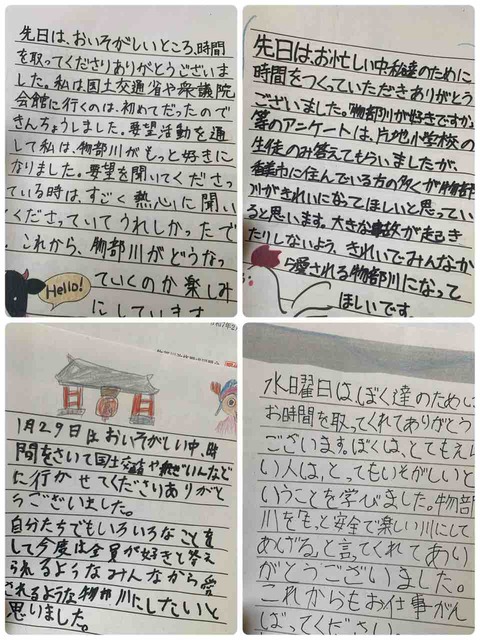 先日は、おいそがしいところ、時間
を取ってくださりありがとうございま
した。私は国土交通省や衆議院
会館に行くのは、初めてだったので
きんちょうしました。要望活動を通
して私は、物部川がもっと好きに
なりました。要望を聞いてくださっ
ている時は、すごく熱心に聞い
くださっていてうれしかったで
。これから、物部川がどうなっ
Hello!
ていくのか楽しみ
にしています
先日は、お忙しい中、私達のために
時間をつくっていただきありがとう
ございました。「物部川が好きですか」
等のアンケートは、片地小学校の
生徒のみ答えてもらいましたが、
香美市に住んでいる方の多くが物部
川がきれいになってほしいと思ってい
ると思います。大きな事故が起き
たりしないよう、きれいでみんなか
ら愛される物部川になって
ほしいです。
1月29日はおいそがしい中、時
間をさいて国土交通省や衆ぎいんなど
に行かせてくださいありがと
うございました。
自分たちでもいろいろなこと直
して今度は全員が好きと答え
られるようなみんなから愛
されるような物部川にしたいと
思いました。
水曜日は、ぼく達のために
お時間を取ってくれてありがとう
ございます。ぼくは、とてもえら
い人は、とってもいそがしいと
いうことを学びました。物部
川を「もっと安全で楽しい川にして
あげる」と言ってくれてあり
がとうございました。
これからもお仕事がん
ばってください